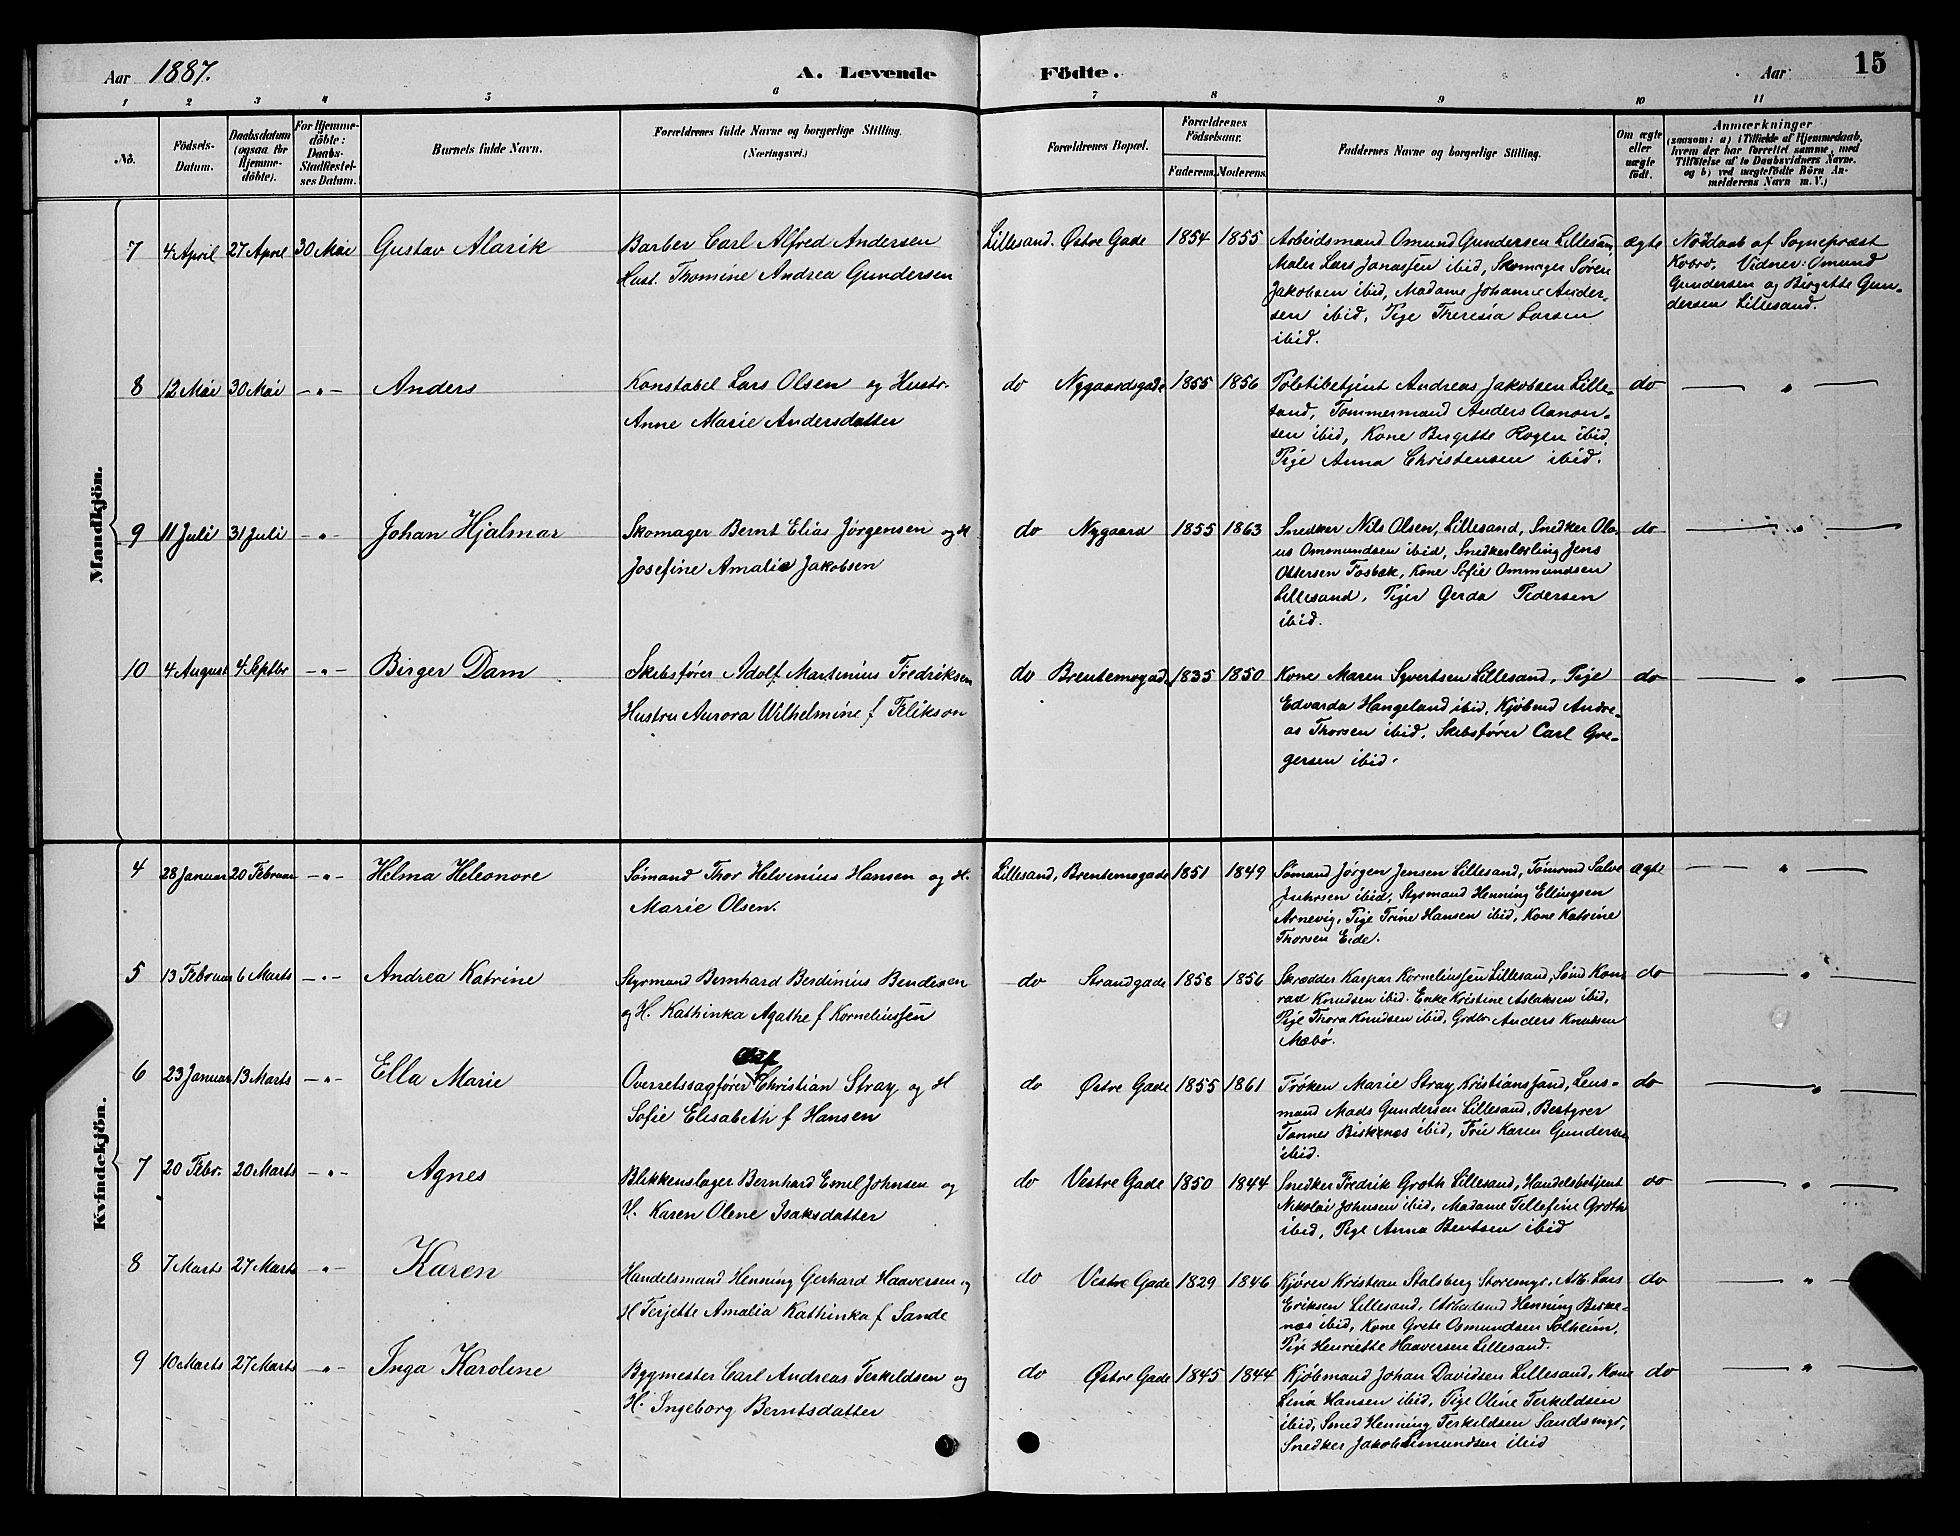 Aar 1887.
A. Levende Födte.
Aar
15
1 2 3 4 5 6 7 8 9 10 11
No.
Födsels-Datum.
Daabsdatum (ogsaa for Hjemme-döbte).
For Hjemme-döbte: Daabs-Stadfæstel-ses Datum.
Barnets fulde Navn.
Forældrenes fulde Navne og borgerlige Stilling.
(Næringsvei.)
Forældrenes Bopæl.
Forældrenes Födselsaar.
Faderens. Moderens.
Faddernes Navne og borgerlige Stilling.
Om ægte eller uægte født.
Anmærkninger
(saasom: a) i Tilfælde af Hjemmedaab,
hvem der har forrettet samme, med
Tilføielse af to Daabsvidners Navne.
og b) ved uægtefödte Börn An-
melderens Navn m. V.)
Mandkjön.
7 4 April 27 April 30 Mai Gustav Alarik
Barber Carl Alfred Andersen
Hust. Thomine Andrea Gundersen
Lillesand. Østre Gade 1854 1855
Arbeidsmand Omund Gundersen Lillesan,
Maler Lars Jonassen ibid, Skomager Søren
Jakobsen ibid, Madame Johanne Ander-
sen ibid, Pige Theresia Larsen
ibid.
ægte
Nøddaab af Sogneprest
Vidner: Omund
Gundersen og Birgitte Gun-
dersen Lillesand.
8 12 Mai 30 Mai -"- Anders
Konstabel Lars Olsen og Hustr.
Anne Marie Andersdatter
do Nygaardsgade 1855 1856
Politibetjent Andreas Jakobsen Lille-
sand, Tømmermand Anders Aanon-
sen ibid, Kone Birgitte Rogen ibid,
Pige Anna Christensen ibid.
do — " —
9 11 Juli 31 Juli -"- Johan Hjalmar
Skomager Bernt Elias Jørgensen og H
Josefine Amalie Jakobsen
do Nygaard 1855 1863
Snedker Nils Olsen, Lillesand, Snedker Ola-
us Ommundsen ibid, Snedkerlærling Jens
Ottersen Fosbæk, Kone Sofie Ommundsen
Lillesand, Pige Gerda Pedersen
ibid.
do — " —
10 4 August 4 Septbr -"- Birger Dam
Skibsfører Adolf Martinius Fredriksen
Hustru Aurora Wilhelmine f Felikson
do Brentemogad. 1835 1850
Kone Maren Syvertsen Lillesand, Pige
Edvarda Hangeland ibid, Kjøbmd Andre-
as Thorsen ibid, Skibsfører Carl Gre-
gersen ibid.
do — " —
Kvindekjön.
4 28 Januar 20 Februar -"- Helma Heleonore
Sømand Thor Helvinius Hansen og H.
Marie Olsen.
Lillesand, Brentemogade 1851 1849
Sømand Jørgen Jensen Lillesand, Tømrmd Salve
ibid, Styrmand Henning Ellingsen
Arnevig, Pige Trine Hansen ibid, Kone Katrine
Thorsen Eide.
ægte — " —
5 13 Februar 6 Marts -"- Andrea Katrine
Styrmand Bernhard Berdinius Bendixen
og H. Kathinka Agathe f Korneliussen
do Strandgade 1858 1856
Skrædder Kaspar Korneliussen Lillesand, Smd Kon-
rad Knudsen ibid. Enke Kristine Aslaksen ibid,
Pige Thora Knudsen ibid, Grdbr Anders Knutsen
Mæbø.
do — " —
6 23 Januar 13 Marts -"- Ella Marie
Overretssagfører Christian Stray og H
Sofie Elisabeth f Hansen
do Østre Gade 1855 1861
Frøken Marie Stray Kristianssand, Lens-
mand Mads Gundersen Lillesand, Bestyrer
Tønnes Birkenes ibid, Frue Karen Gundersen
ibid.
do — " —
7 20 Febr. 20 Marts -"- Agnes
Blikkenslager Bernhard Emil Johnsen og
H. Karen Olene Isaksdatter
do Vestre Gade 1850 1844
Snedker Fredrik Groth Lillesand, Handelsbetjent
Nikolai Johnsen ibid, Madame Tellefine Groth
ibid, Pige Anna Bentsen ibid
do — " —
8 7 Marts 27 Marts -"- Karen
Handelsmand Henning Gerhard Haaversen og
H Terjette Amalia Kathinka f Sande
do Vestre Gade 1829 1846
Kjører Kristian Stalsberg Storemyr, Arb. Lars
Eriksen Lillesand, Arbeidsmd Henning Birke-
næs ibid, Kone Grete Osmundsen Solheim,
Pige Henriette Haaversen Lillesand.
do — " —
9 10 Marts 27 Marts -"- Inga Karoline
Bygmester Carl Andreas Terkildsen og
H. Ingeborg Berntsdatter
do Østre Gade 1845 1844
Kjøbmand Johan Davidsen Lillesand, Kone
Lina Hansen ibid, Pige Oline Terkildsen
ibid, Smed Henning Terkildsen Sandsmyr,
Snedker Jakob Simundsen ibid
do — " —